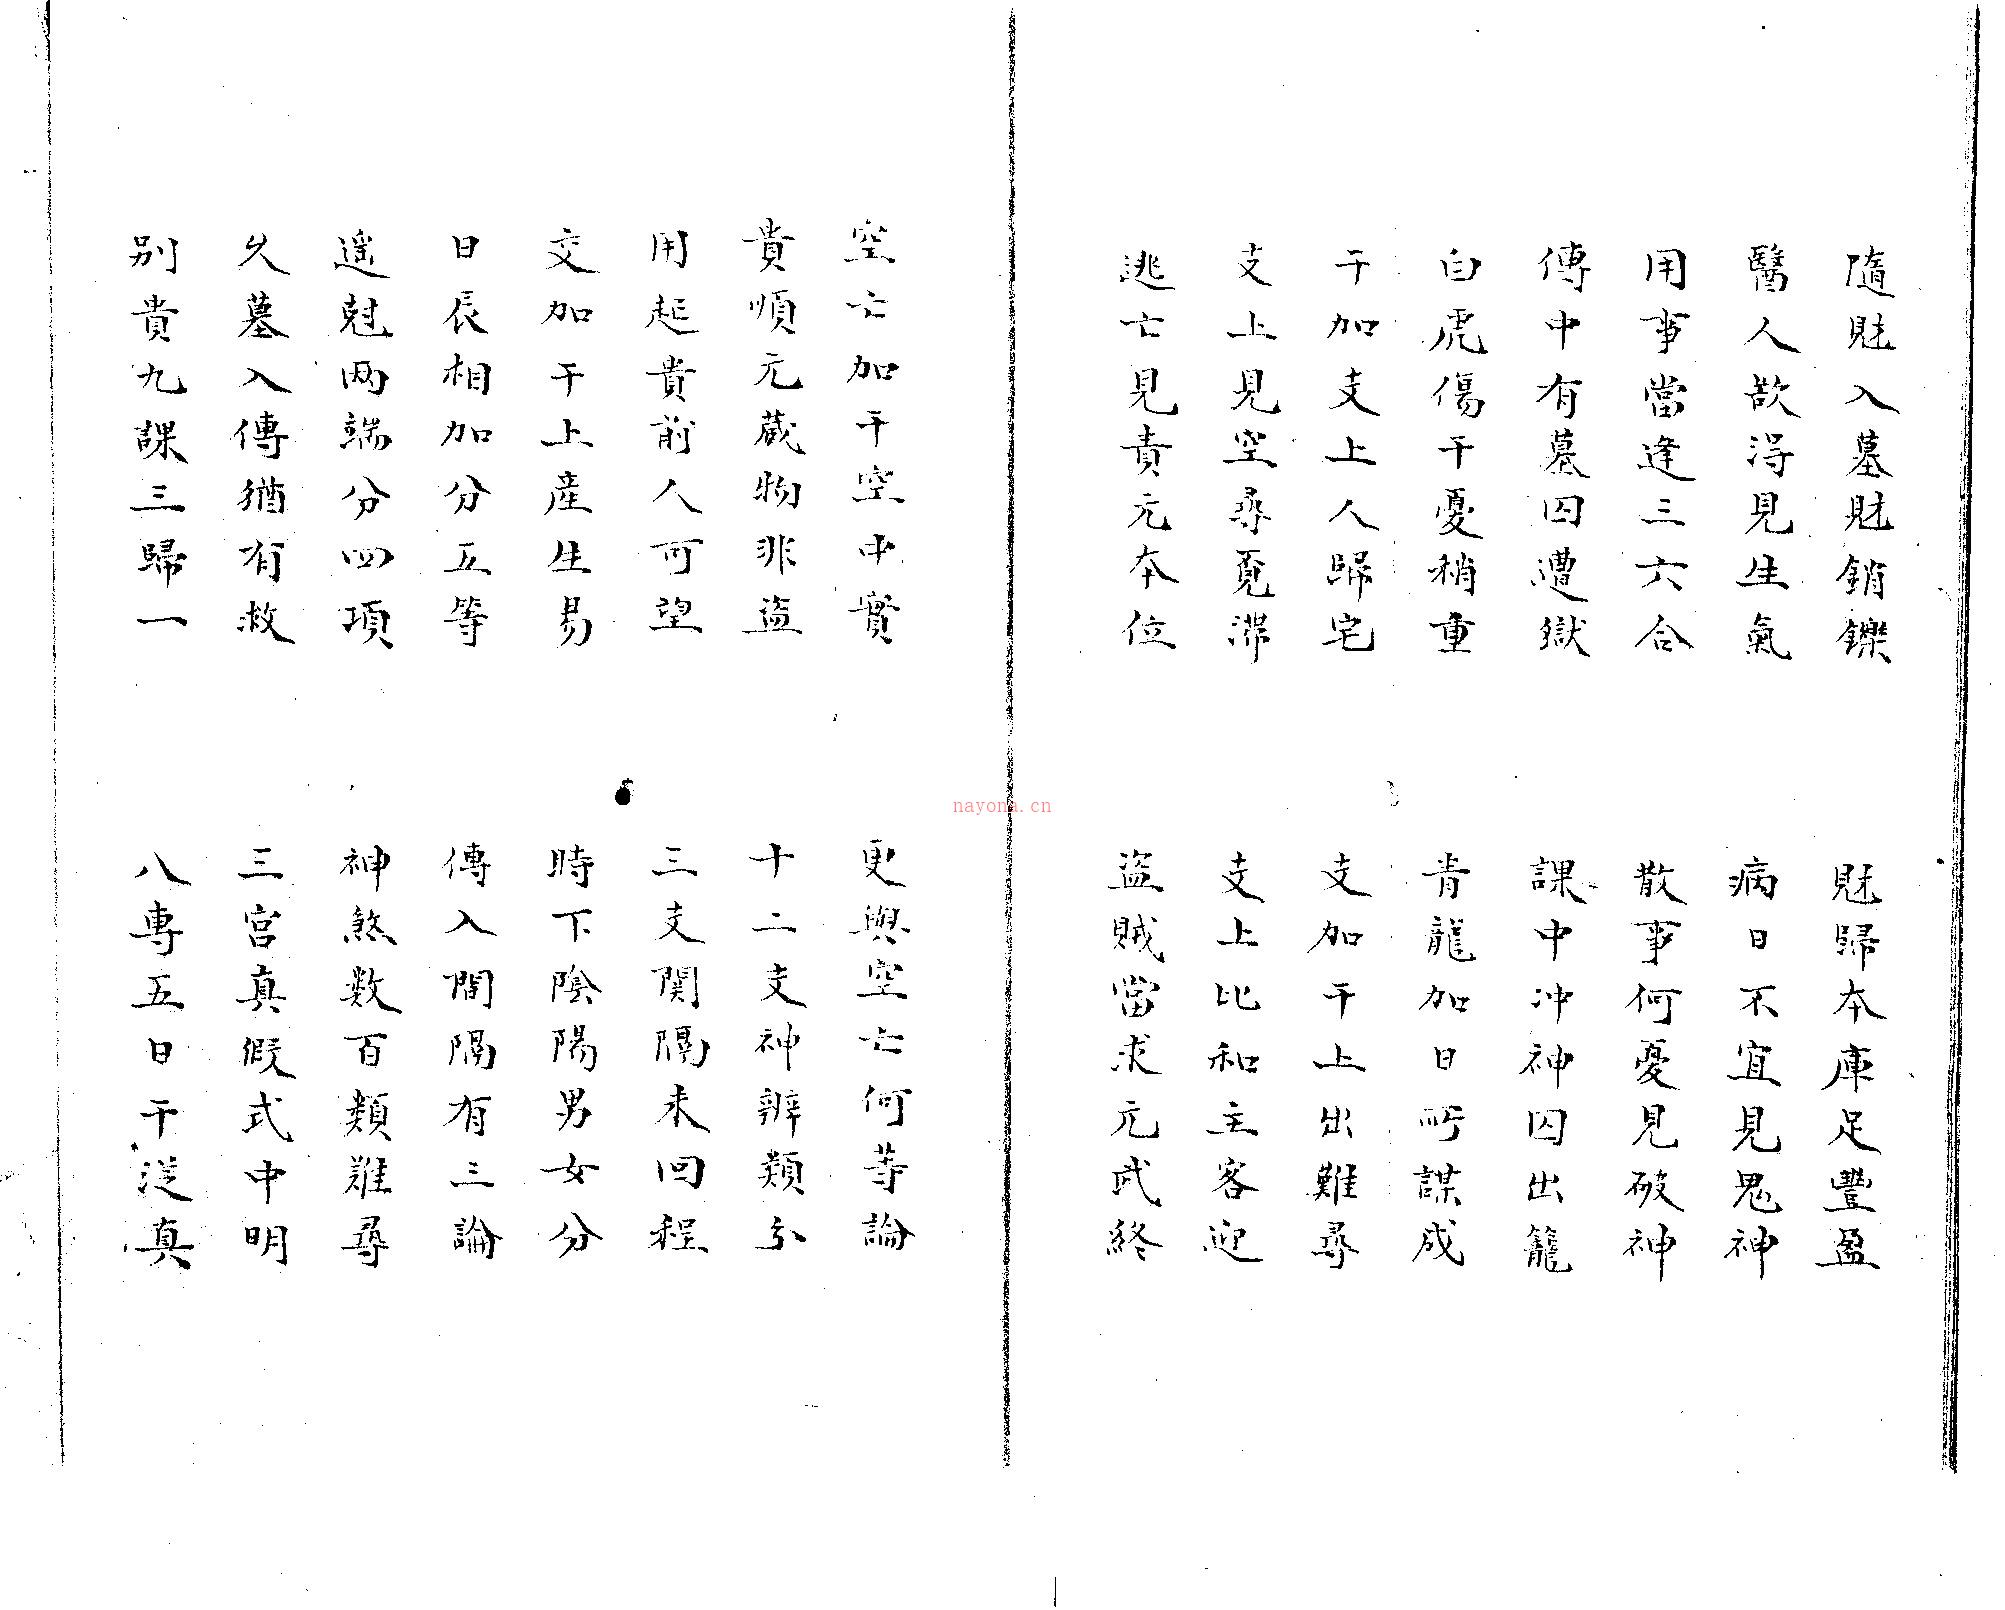 隨財入墓財銷鑠
財歸本庫足豐盈
醫人欲得見生氣
病日不宜見鬼神
用事當逢三六合
散事何憂見破神
傳中有墓囚遭獄
課中冲神囚出籠
白虎傷干憂稍重
青龍加日所謀成
干加支上人歸宅
支加干上出難尋
支上見空尋覓滞
支上比和主客迎
逃亡見責元本位
盜賊當求元武終
空亡加干空中實
更與空亡何等論
貴順元蔵物非盜
十二支神辨類分
用起貴前人可望
三支関隔未回程
交加干上產生易
時下陰陽男女分
日辰相加分五等
傳入間隔有三論
遥尅兩端分四項
神煞数百類難尋
久墓入傳猶有救
三宫真假式中明
别貴九課三歸一
八專五日干從真
nayona.cn